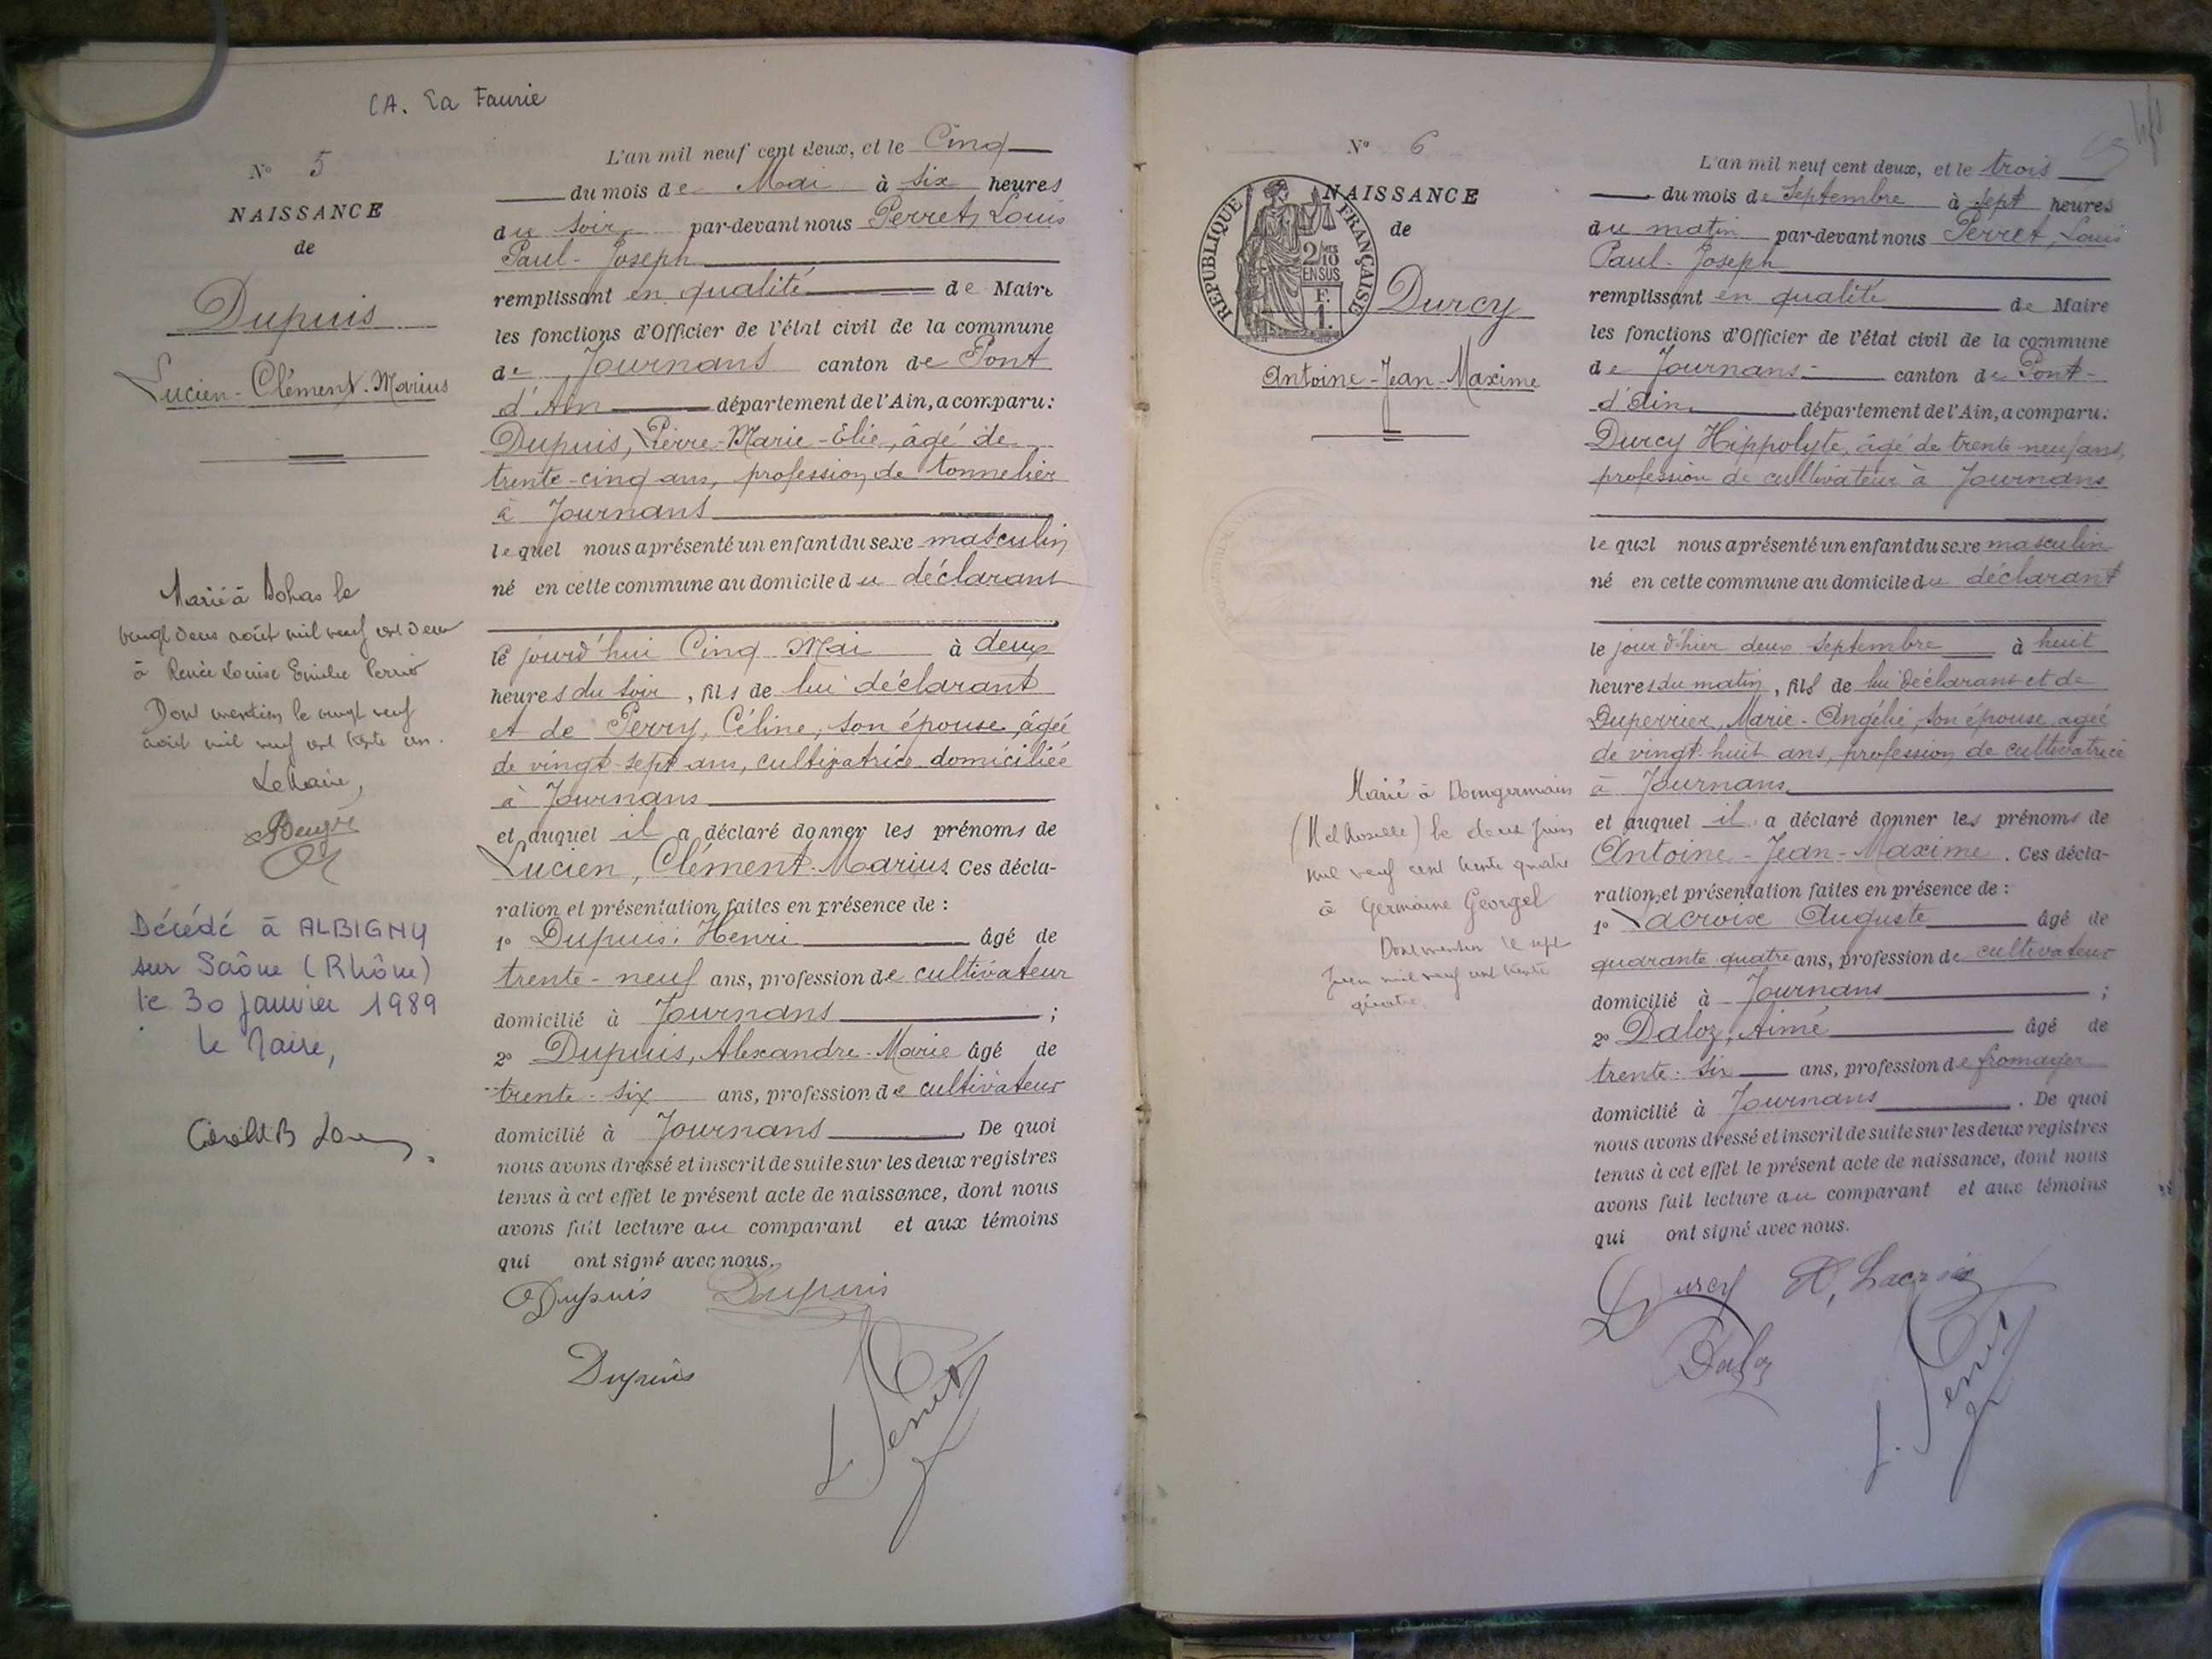 CA. La Faurie
N° 5
NAISSANCE
de
Dupuis
Lucien-Clément-Marius
Marié à Dohas le
vingt deux août mil neuf cent
à Renée Louise Emilie
Dont mention le vingt neuf
août mil neuf cent trente un.
Le Maire,
Décédé à ALBIGNY
sur Saône (Rhône)
le 30 janvier 1989
le Maire,
L'an mil neuf cent deux, et le Cinq
du mois de Mai à six heures
du soir, par-devant nous Perret, Louis
Paul-Joseph
remplissant en qualité de Maire
les fonctions d'Officier de l'état civil de la commune
de Journans canton de Pont
d'Ain département de l'Ain, a comparu:
Dupuis, Pierre-Marie-Elie, âgé de
trente-cinq ans, profession de tonnelier
à Journans
lequel nous a présenté un enfant du sexe masculin
né en cette commune au domicile du déclarant
le jourd'hui Cinq Mai à deux
heures du soir, fils de lui déclarant
et de Perry, Céline, son épouse, âgée
de vingt-sept ans, cultivatrice domiciliée
à Journans
et auquel il a déclaré donner les prénoms de
Lucien, Clément-Marius. Ces décla-
ration et présentation faites en présence de :
1° Dupuis, Henri âgé de
trente-neuf ans, profession de cultivateur
domicilié à Journans ;
2° Dupuis, Alexandre-Marie âgé de
trente-six ans, profession de cultivateur
domicilié à Journans. De quoi
nous avons dressé et inscrit de suite sur les deux registres
tenus à cet effet le présent acte de naissance, dont nous
avons fait lecture au comparant et aux témoins
qui ont signé avec nous.
Dupuis Dupuis
Dupuis
L. Perret
N° 6
NAISSANCE
de
RÉPUBLIQUE FRANÇAISE
2/10 EN SUS
F.
1.
Durcy
Antoine-Jean-Maxime
Marié à Domgermain
(M et Moselle) le deux juin
mil neuf cent trente quatre
à Germaine Georgel
Dont mention le sept
juin mil neuf cent trente
quatre.
L'an mil neuf cent deux, et le trois
du mois de Septembre à sept heures
du matin par-devant nous Perret, Louis
Paul-Joseph
remplissant en qualité de Maire
les fonctions d'Officier de l'état civil de la commune
de Journans- canton de Pont-
d'Ain département de l'Ain, a comparu:
Durcy Hippolyte, âgé de trente-neuf ans,
profession de cultivateur à Journans
lequel nous a présenté un enfant du sexe masculin
né en cette commune au domicile du déclarant
le jour d'hier deux septembre à huit
heures du matin, fils de lui déclarant et de
Duperrier, Marie-Angélie, son épouse, agée
de vingt-huit ans, profession de cultivatrice
à Journans
et auquel il a déclaré donner les prénoms de
Antoine-Jean-Maxime. Ces décla-
ration et présentation faites en présence de :
1° Lacroix Auguste âgé de
quarante quatre ans, profession de cultivateur
domicilié à Journans ;
2° Daloz, Aimé âgé de
trente-six ans, profession de fromager
domicilié à Journans. De quoi
nous avons dressé et inscrit de suite sur les deux registres
tenus à cet effet le présent acte de naissance, dont nous
avons fait lecture au comparant et aux témoins
qui ont signé avec nous.
Durcy A, Lacroix
Daloz
L. Perret